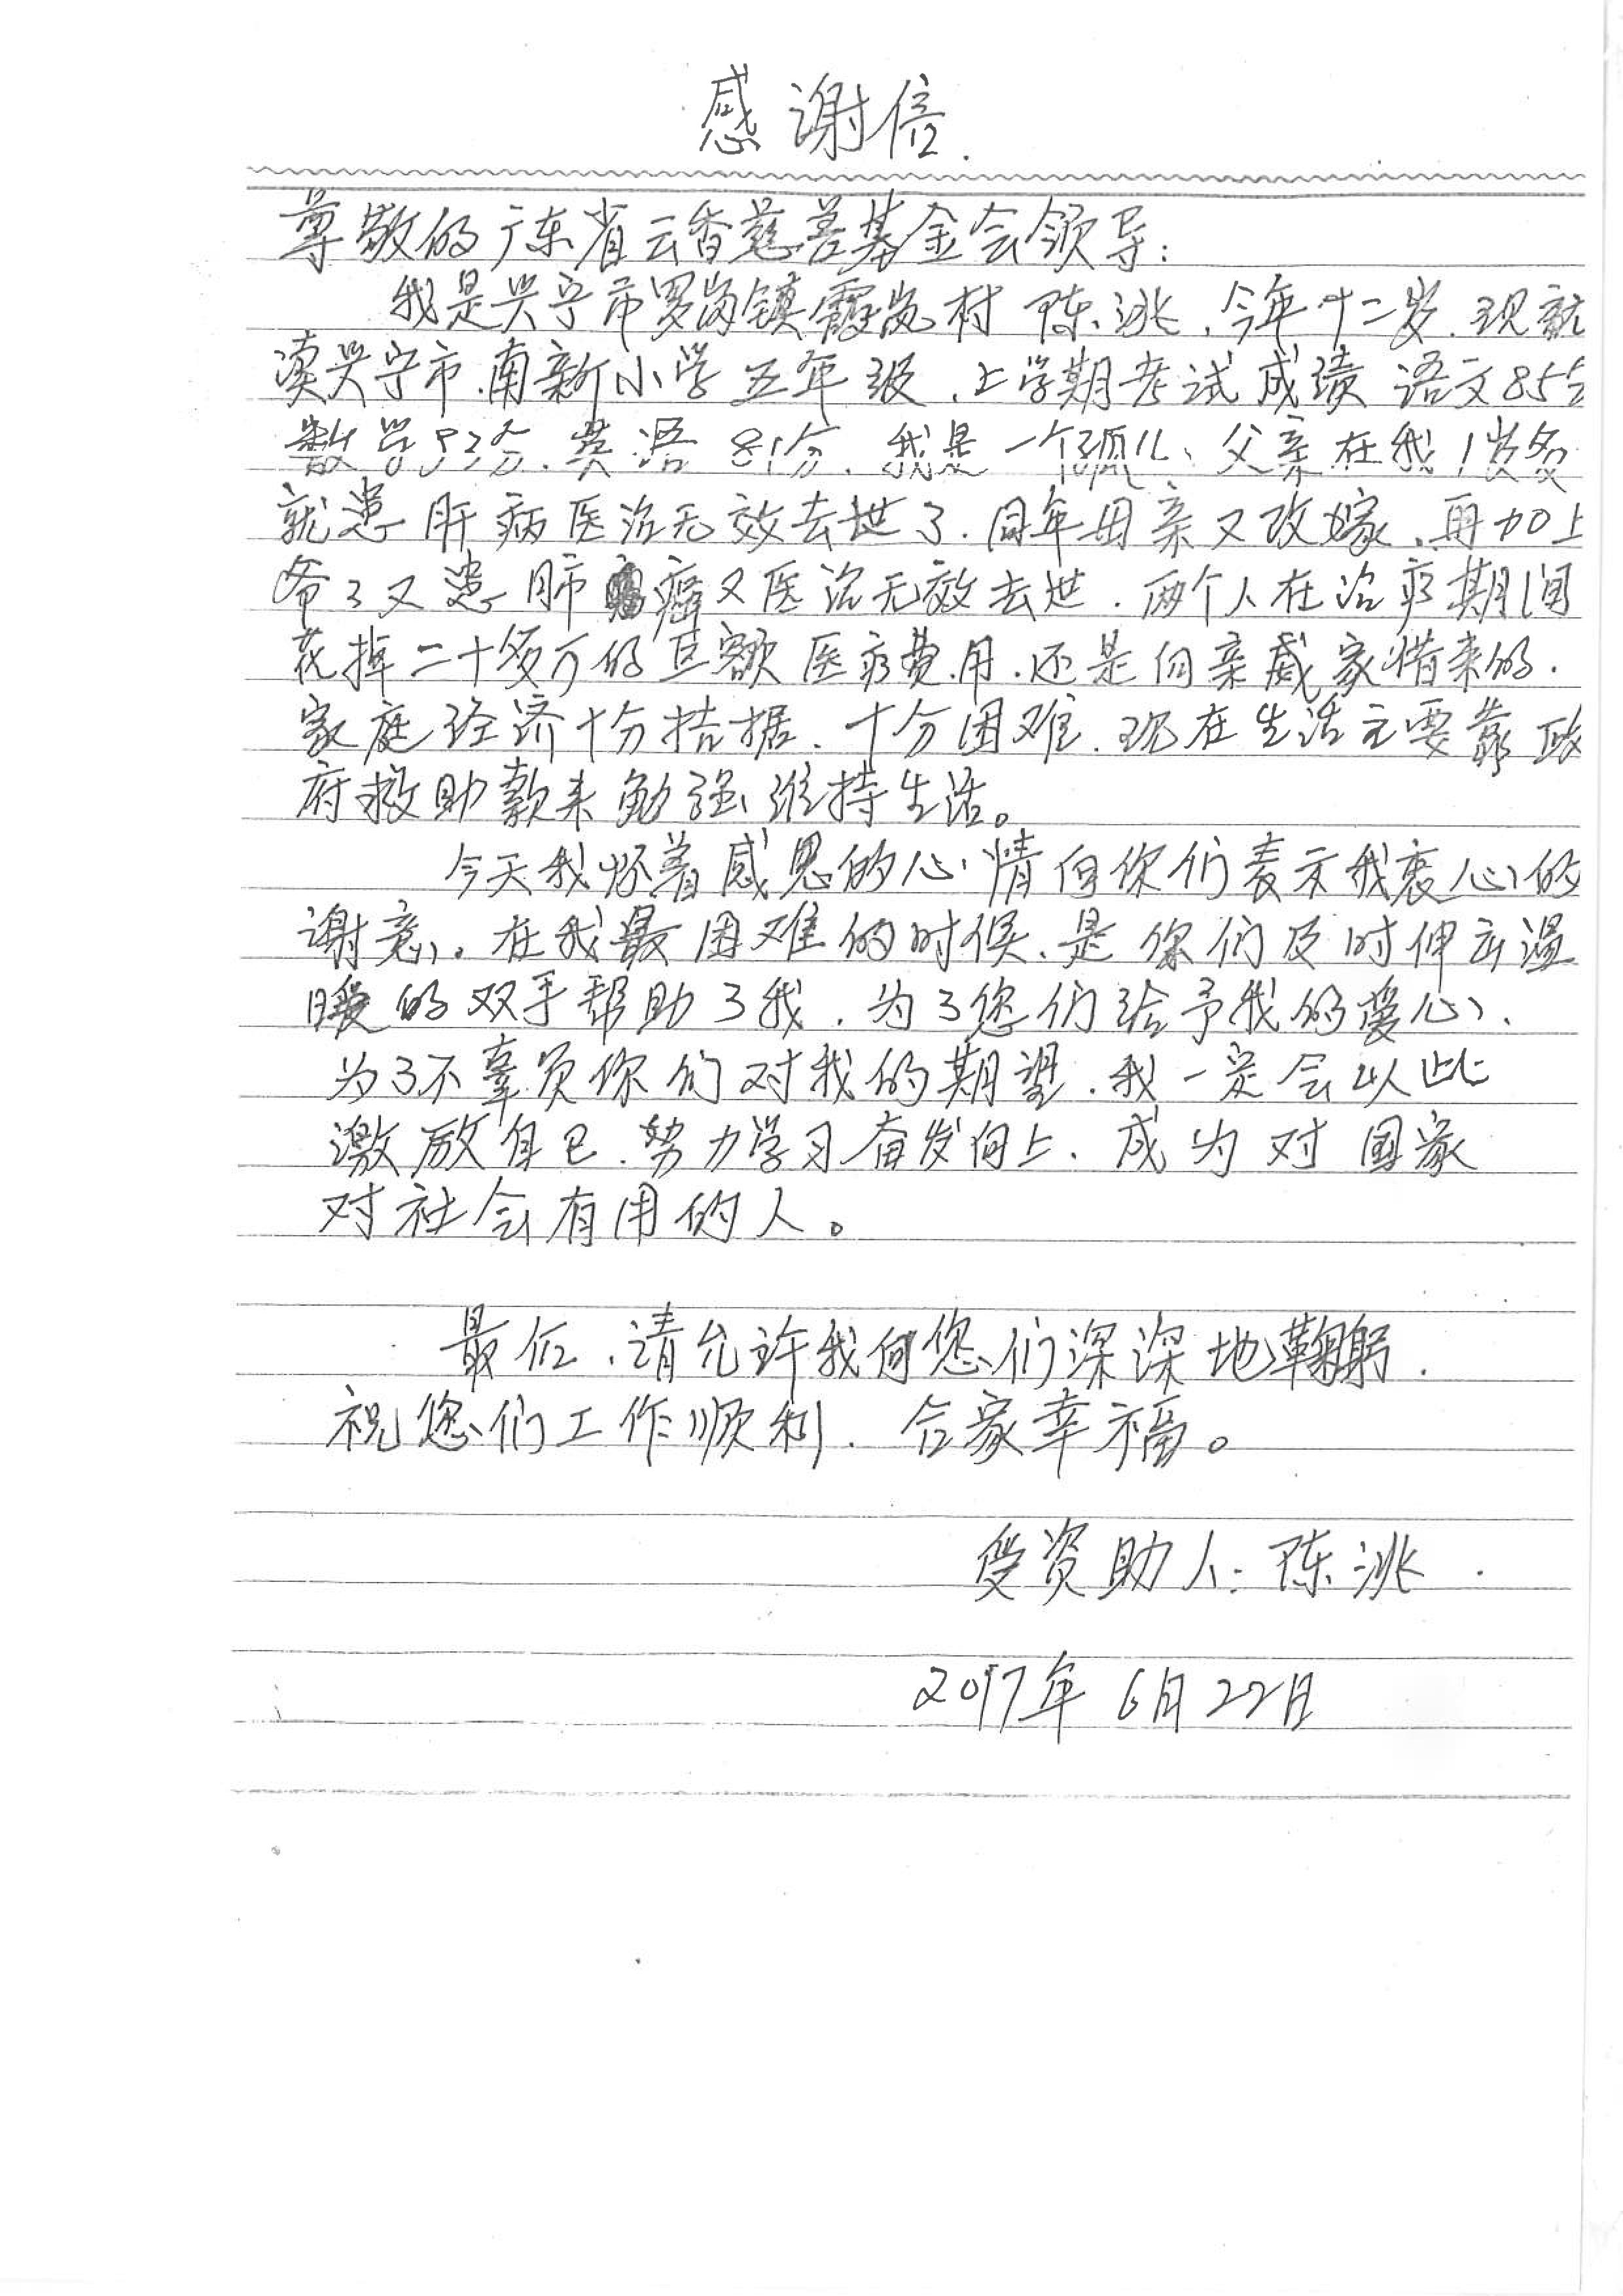 感谢信.
尊敬的广东省云香慈善基金会领导：
我是兴宁市罗岗镇霞岚村 陈洮，今年十二岁，现就
读兴宁市南新小学五年级，上学期考试成绩 语文85分
数学83分，英语81分，我是一个孤儿、父亲在我1岁多
就患肝病医治无效去世了，同年母亲又改嫁，再加上
爷了又患肺癌又医治无效去世，两个人在治疗期间
花掉二十多万的巨额医疗费用，还是向亲戚家借来的，
家庭经济十分拮据、十分困难，现在生活主要靠政
府救助款来勉强维持生活。
今天我怀着感恩的心情向你们表示我衷心的
谢意。在我最困难的时候、是你们及时伸出温
暖的双手帮助了我，为了您们给予我的爱心、
为了不辜负你们对我的期望，我一定会以此
激励自己，努力学习奋发向上、成为对国家
对社会有用的人。
最后，请允许我向您们深深地鞠躬，
祝您们工作顺利，合家幸福。
受资助人：陈洮
2017年6月22日